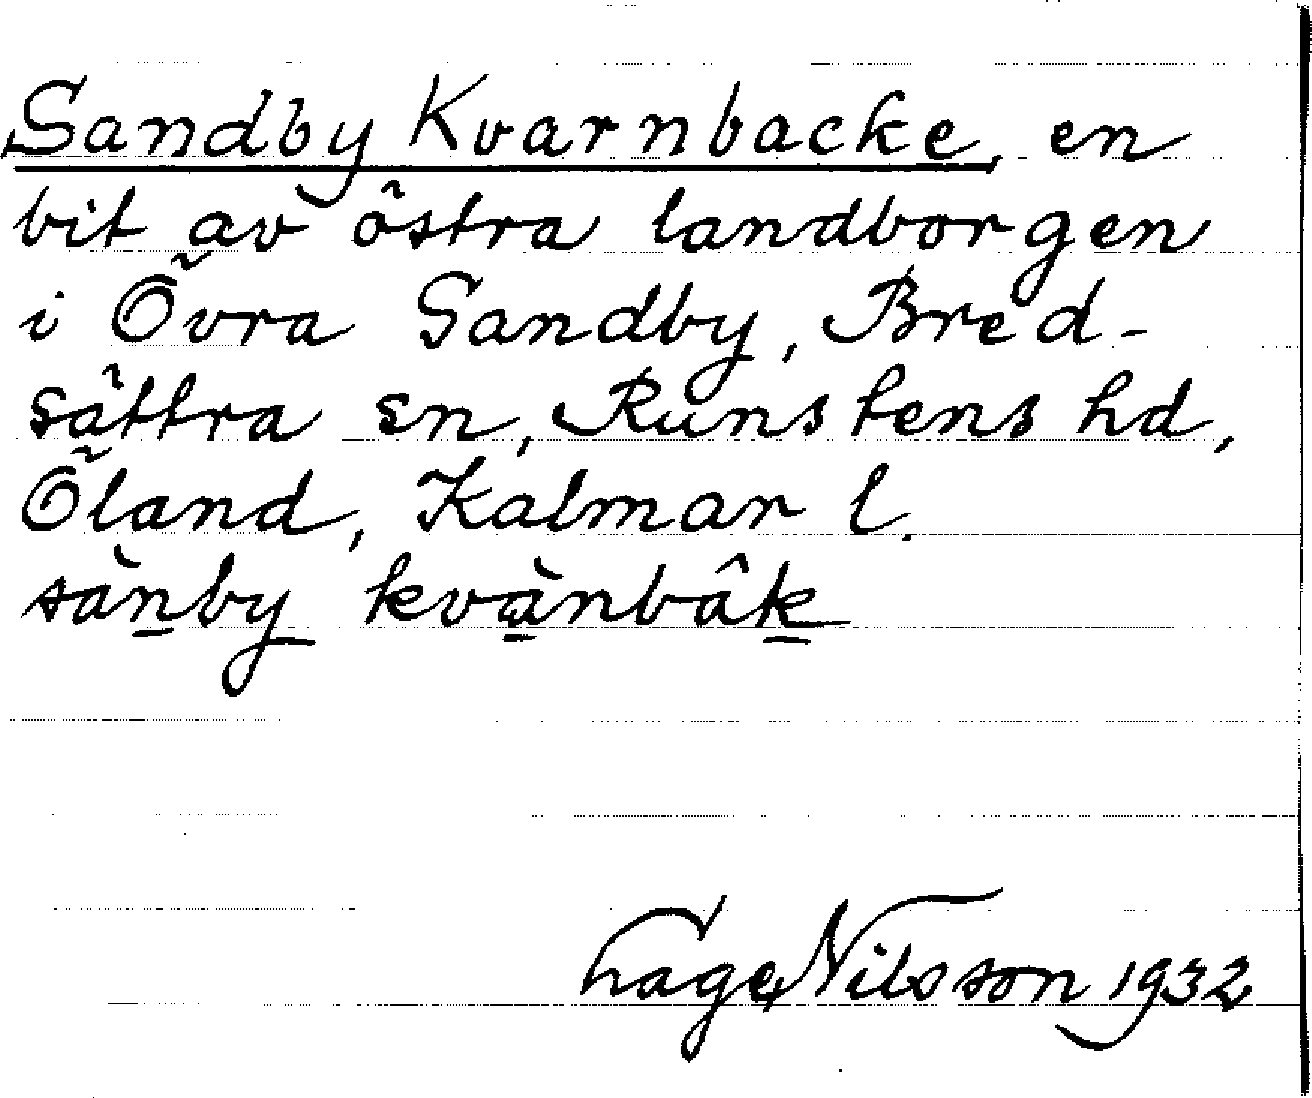 Sandby Kvarnbacke, en
bit av östra landborgen
i Övra Sandby, Bred-
sättra sn, Runstens hd,
Öland, Kalmar l.
sànby kvànbâk
Hage Nilsson 1932